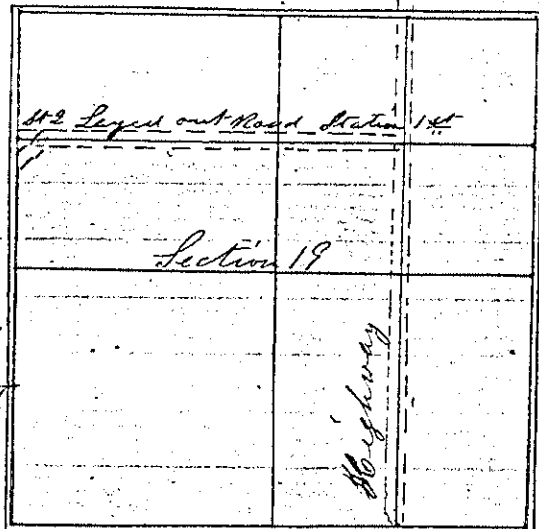 St 2 Layed out Road Station 1st
Section 19
Highway